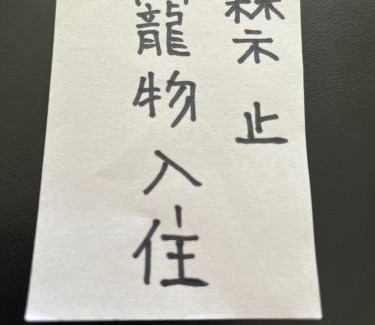 禁止
寵物入住